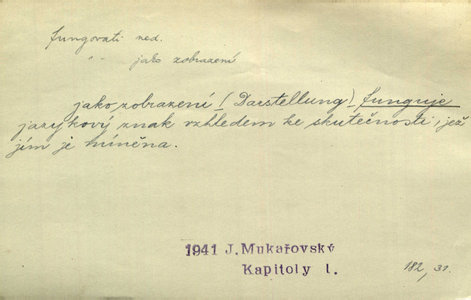 fungovati ned.
" " jako zobrazení
jako zobrazení (Darstellung) funguje
jazykový znak vzhledem ke skutečnosti, jež
jím je míněna.
1941 J. Mukařovský
Kapitoly I.
182, 31.